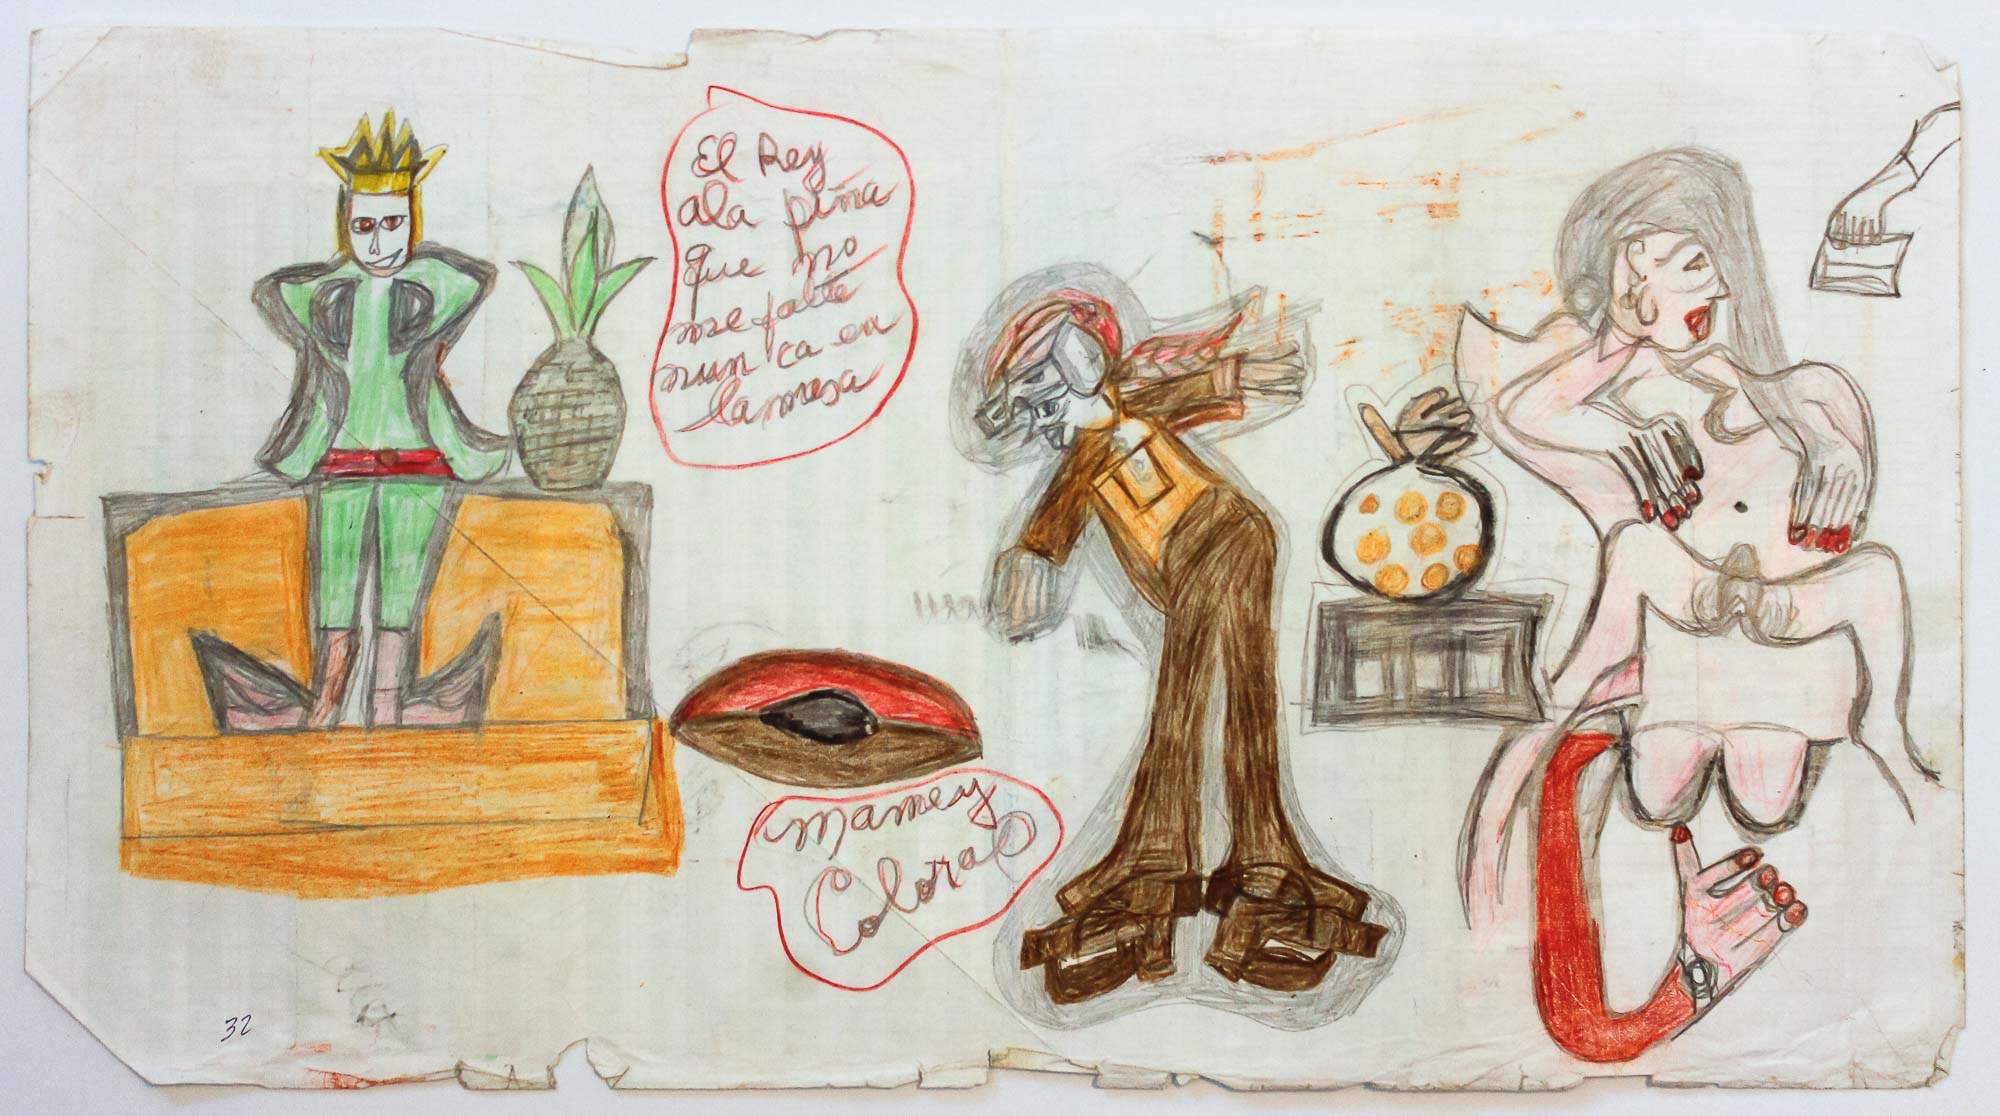 El Rey
ala piña
que no
me falte
nun ca en
la mesa
Mamey
Colorao
32